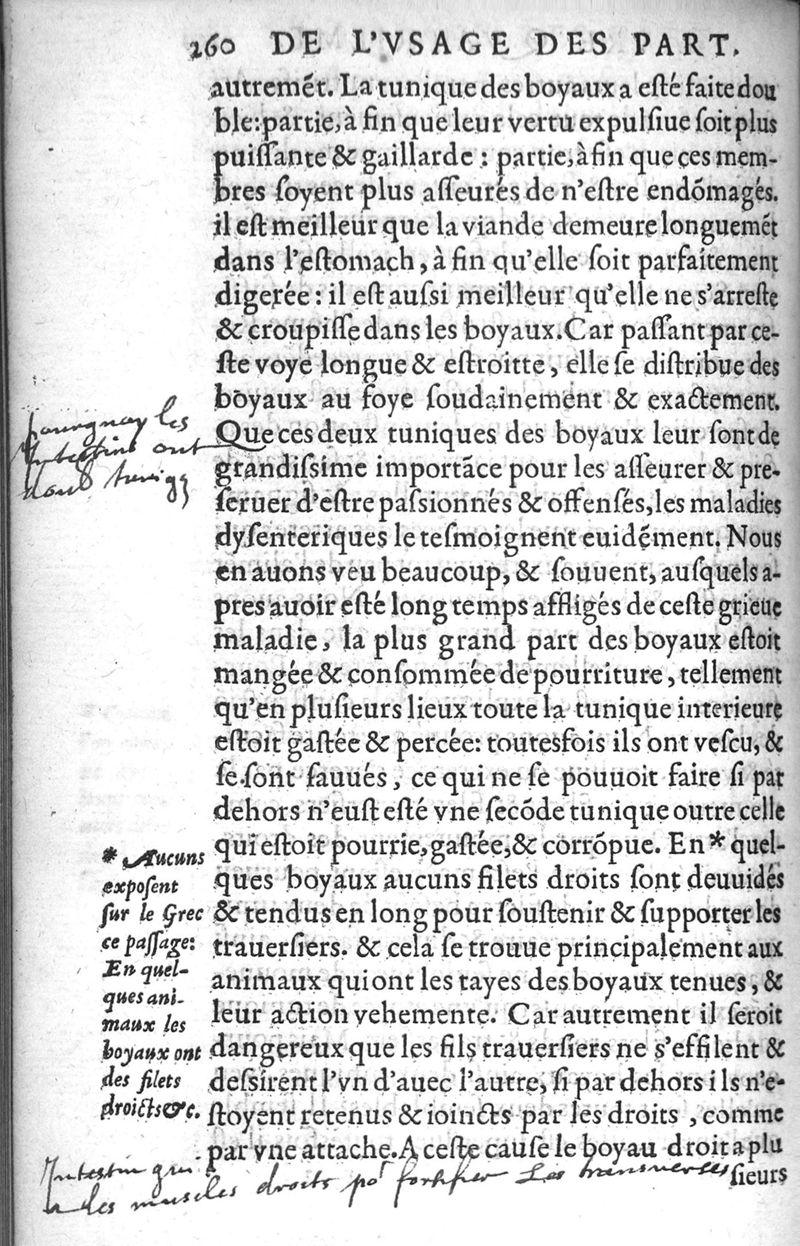 260 DE L'VSAGE DES PART.
autremẽt. La tunique des boyaux a eſté faite dou
ble:partie, à fin que leur vertu expulſiue ſoit plus
puiſſante & gaillarde : partie, à fin que ces mem-
bres ſoyent plus aſſeurés de n'eſtre endõmagés.
il eſt meilleur que la viande demeure longuemẽt
dans l'eſtomach, à fin qu'elle ſoit parfaitement
digerée : il eſt auſsi meilleur qu'elle ne s'arreſte
& croupiſſe dans les boyaux. Car paſſant par ce-
ſte voye longue & eſtroitte, elle ſe diſtribue des
boyaux au foye ſoudainement & exactement.
Que ces deux tuniques des boyaux leur ſont de
grandiſsime importãce pour les aſſeurer & pre-
ſeruer d'eſtre paſsionnés & offenſés, les maladies
dyſenteriques le teſmoignent euidẽment. Nous
en auons veu beaucoup, & ſouuent, auſquels a-
pres auoir eſté long temps affligés de ceſte grieue
maladie, la plus grand part des boyaux eſtoit
mangée & conſommée de pourriture, tellement
qu'en pluſieurs lieux toute la tunique interieure
eſtoit gaſtée & percée: toutesfois ils ont veſcu, &
ſe ſont ſauués, ce qui ne ſe pouuoit faire ſi par
dehors n'euſt eſté vne ſecõde tunique outre celle
qui eſtoit pourrie, gaſtée, & corrõpue. En * quel-
ques boyaux aucuns filets droits ſont deuuidés
& tendus en long pour ſouſtenir & ſupporter les
trauerſiers. & cela ſe trouue principalement aux
animaux qui ont les tayes des boyaux tenues, &
leur action vehemente. Car autrement il ſeroit
dangereux que les fils trauerſiers ne s'effilent &
deſsirent l'vn d'auec l'autre, ſi par dehors ils n'e-
ſtoyent retenus & ioincts par les droits, comme
par vne attache. A ceſte cauſe le boyau droit a plu
ſieurs
pourquoy les
Intestins ont
* Aucuns
expoſent
ſur le Grec
ce paſſage:
En quel-
ques ani-
maux les
boyaux ont
des filets
droicts &c.
Intestin
a des muscles droits por fortifier Les transverses